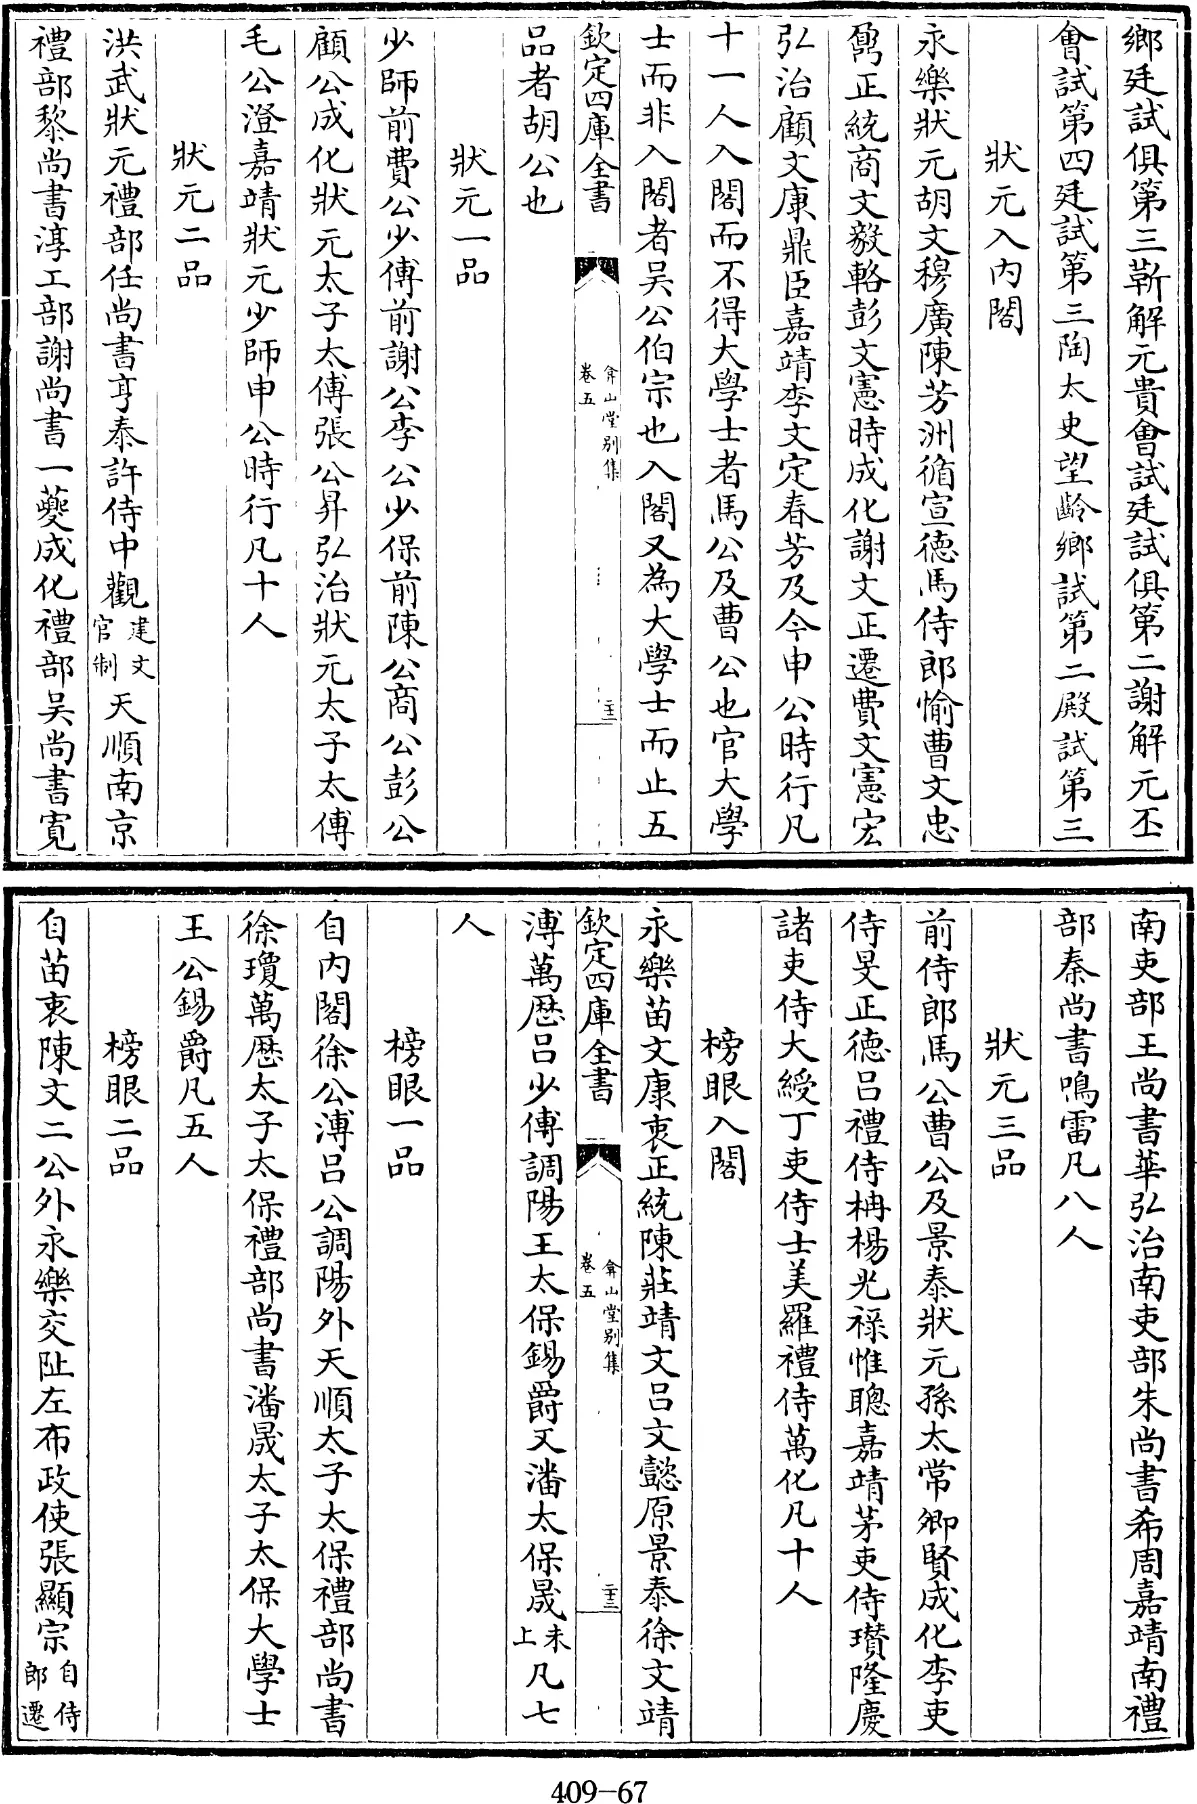 鄉廷試俱第三靳解元貴會試廷試俱第二謝解元丕
會試第四廷試第三陶太史望齡鄉試第二殿試第三
狀元入内閣
永樂狀元胡文穆廣陳芳洲循宣德馬侍郎愉曹文忠
鼐正統商文毅輅彭文憲時成化謝文正遷費文憲宏
弘治顧文康鼎臣嘉靖李文定春芳及今申公時行凡
十一人入閣而不得大學士者馬公及曹公也官大學
士而非入閣者吳公伯宗也入閣又為大學士而止五
欽定四庫全書
弇山堂别集
卷五
品者胡公也
狀元一品
少師前費公少傅前謝公李公少保前陳公商公彭公
顧公成化狀元太子太傅張公昇弘治狀元太子太傅
毛公澄嘉靖狀元少師申公時行凡十人
狀元二品
洪武狀元禮部任尚書亨泰許侍中觀建文官制天順南京
禮部黎尚書淳工部謝尚書一夔成化禮部吳尚書寬
南吏部王尚書華弘治南吏部朱尚書希周嘉靖南禮
部秦尚書鳴雷凡八人
狀元三品
前侍郎馬公曹公及景泰狀元孫太常卿賢成化李吏
侍旻正德呂禮侍柟楊光祿惟聰嘉靖茅吏侍瓚隆慶
諸吏侍大綬丁吏侍士美羅禮侍萬化凡十人
榜眼入閣
永樂苗文康衷正統陳莊靖文呂文懿原景泰徐文靖
欽定四庫全書
弇山堂别集
卷五
溥萬歴呂少傅調陽王太保錫爵又潘太保晟未上凡七
人
榜眼一品
自内閣徐公溥呂公調陽外天順太子太保禮部尚書
徐瓊萬歴太子太保禮部尚書潘晟太子太保大學士
王公錫爵凡五人
榜眼二品
自苗衷陳文二公外永樂交阯左布政使張顯宗自侍郎遷
409-67